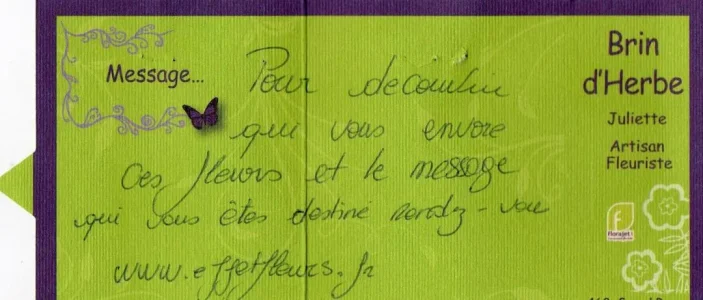 Message...
Pour decouvrir
qui vous envoie
ces fleurs et le message
qui vous êtes destiné rendez-vous
www.effetfleurs.fr
Brin
d'Herbe
Juliette
Artisan
Fleuriste
florajet